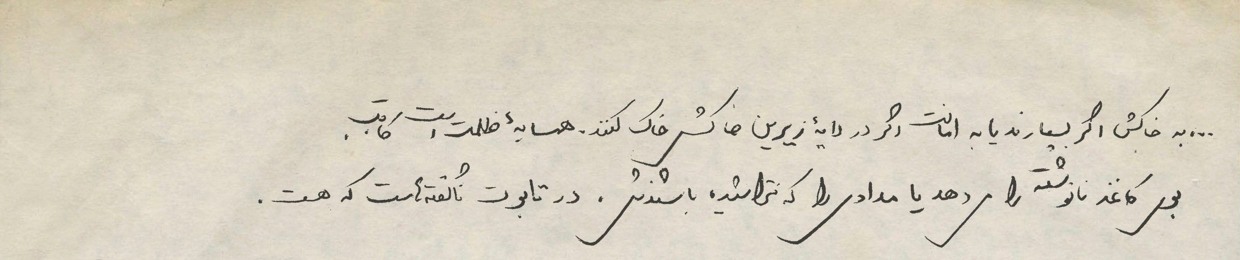 ...به خاکش اگر بسپارند یا به امانت اگر در لایهٔ زیرین خاکش خاک کنند. همسایهٔ ظلمت است کاتب.
بوی کاغذ نانوشته را می دهد یا مدادی را که نتراشیده باشندش. در تابوت ناگفته‌است که هست.